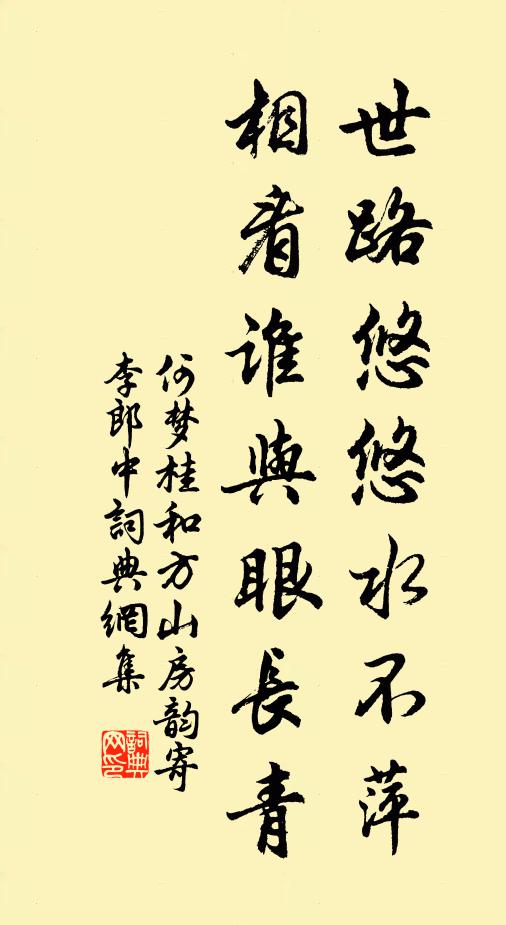 世路悠悠水不萍
相看谁與眼長青
何梦桂和方山房韵寄
李郎中詞典網集
詞典
网印